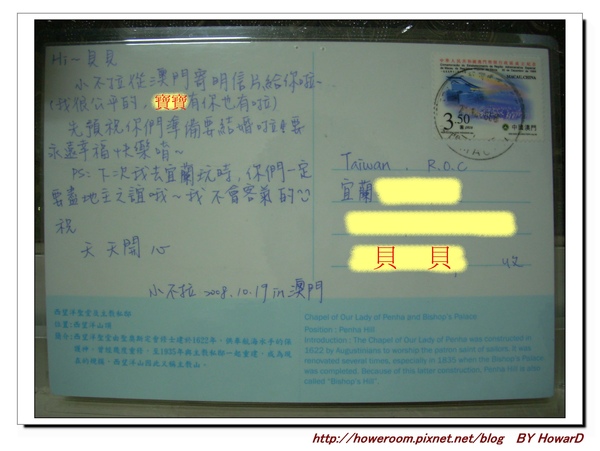 Hi~ 貝貝
小不拉從澳門寄明信片給你啦~
(我很公平的, 寶寶有你也有啦)
先預祝你們準備要結婚啦!要
永遠幸福+快樂唷~
PS: 下次我去宜蘭玩時, 你們一定
要盡地主之誼哦~我不會客氣的
祝
天天開心
小不拉 2008.10.19 in 澳門
MACAU, CHINA
3.50
中國澳門
Taiwan . R.O.C
宜蘭
貝 貝
收
西望洋聖堂及主教私邸
位置:西望洋山頂
Chapel of Our Lady of Penha and Bishop's Palace
Position : Penha Hill
Introduction : The Chapel of Our Lady of Penha was constructed in
1622 by Augustinians to worship the patron saint of sailors. It was
renovated several times, especially in 1835 when the Bishop's Palace
was completed. Because of this latter construction, Penha Hill is also
called "Bishop's Hill".
http://howeroom.pixnet.net/blog BY HowarD